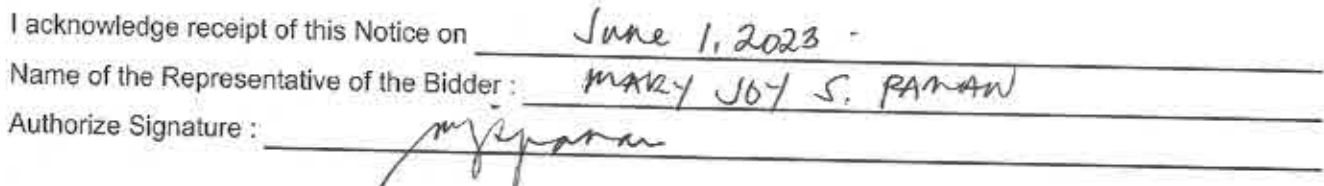 I acknowledge receipt of this Notice on June 1, 2023
Name of the Representative of the Bidder : MARY JOY S. PANAN
Authorize Signature :